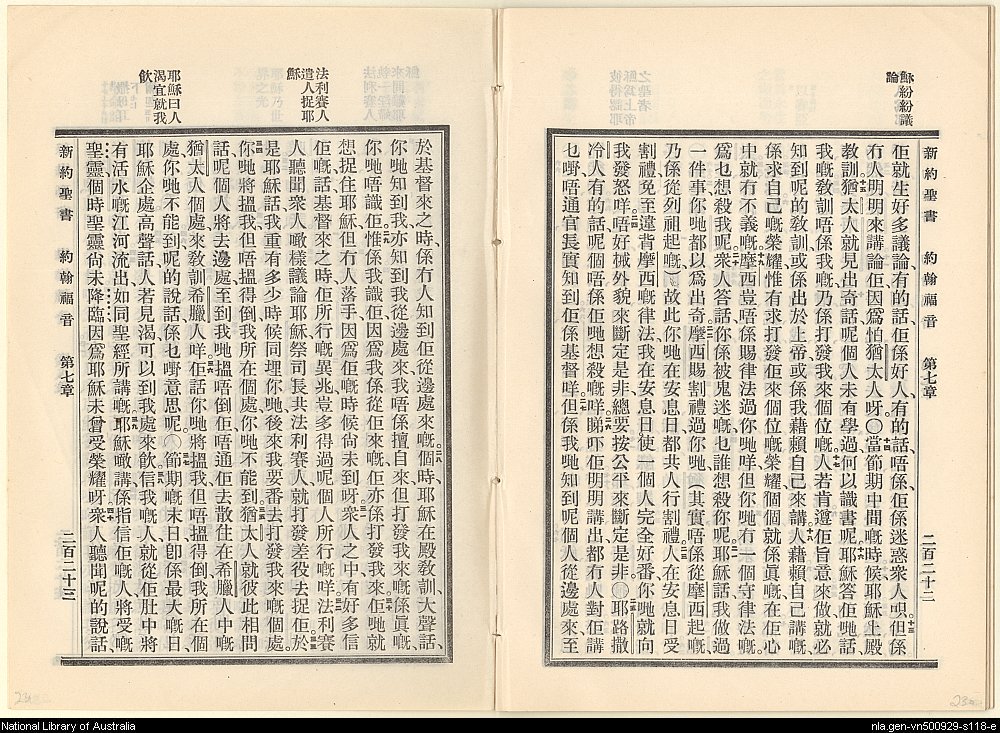 穌紛紛議
論
新約聖書 約翰福音 第七章 二百二十二
佢就生好多議論有的話佢係好人有的話唔係佢係迷惑衆人唄但係
冇人明明來講論佢因爲怕猶太人呀〇當節期中間嘅時候耶穌上殿
教訓猶太人就見出奇話呢個人未有學過何以識書呢耶穌答佢哋話
我嘅教訓唔係我嘅乃係打發我來個位嘅人若肯遵佢旨意來做就必
知到呢的教訓或係出於上帝或係我藉賴自己來講人藉賴自己講嘅
係求自己嘅榮耀惟有求打發佢來個位嘅榮耀個個就係眞嘅在佢心
中就冇不義嘅摩西豈唔係賜律法過你哋咩但你哋冇一個守律法嘅
爲乜想殺我呢衆人答話你係被鬼迷嘅乜誰想殺你呢耶穌話我做過
一件事你哋都以爲出奇摩西賜割禮過你哋(其實唔係從摩西起嘅
乃係從列祖起嘅)故此你哋在安息日都共人行割禮人在安息日受
割禮免至違背摩西嘅律法我在安息日使一個人完全好番你哋就向
我發怒咩唔好械外貌來斷定是非總要按公平來斷定是非〇耶路撒
冷人有的話呢個唔係佢哋想殺嘅咩睇吓佢明明講出都冇人對佢講
乜嘢唔通官長實知到佢係基督咩但係我哋知到呢個人從邊處來至
法利賽人
遣人捉耶
穌
耶穌曰人
渴宜就我
飲
於基督來之時係冇人知到佢從邊處來嘅個時耶穌在殿敎訓大聲話
你哋知到我亦知到我從邊處來我唔係擅自來但打發我來嘅係眞嘅
你哋唔識佢惟係我識佢因爲我係從佢來嘅佢亦係打發我來佢哋就
想捉住耶穌但冇人落手因爲佢嘅時候尚未到呀衆人之中有好多信
佢嘅話基督來之時佢所行嘅異兆豈多得過呢個人所行嘅咩法利賽
人聽聞衆人噉樣議論耶穌祭司長共法利賽人就打發差役去捉佢於
是耶穌話我重有多少時候同埋你哋後來我要番去打發我來嘅個處
你哋將搵我但唔搵得倒我所在個處你哋不能到猶太人就彼此相問
話呢個人將去邊處至到我哋搵唔倒佢唔通佢去散住在希臘人中嘅
猶太人個處來敎訓希臘人咩佢話你哋將搵我但唔搵得倒我所在個
處你哋不能到呢的說話係乜嘢意思呢〇節期嘅末日卽係最大嘅日
耶穌企處高聲話人若見渴可以到我處來飲信我嘅人就從佢肚中將
有活水嘅江河流出如同聖經所講嘅耶穌噉講係指信佢嘅人將受嘅
聖靈個時聖靈尚未降臨因爲耶穌未曾受榮耀呀衆人聽聞呢的說話
新約聖書 約翰福音 第七章 二百二十三
National Library of Australia
nla.gen-vn500929-s118-e